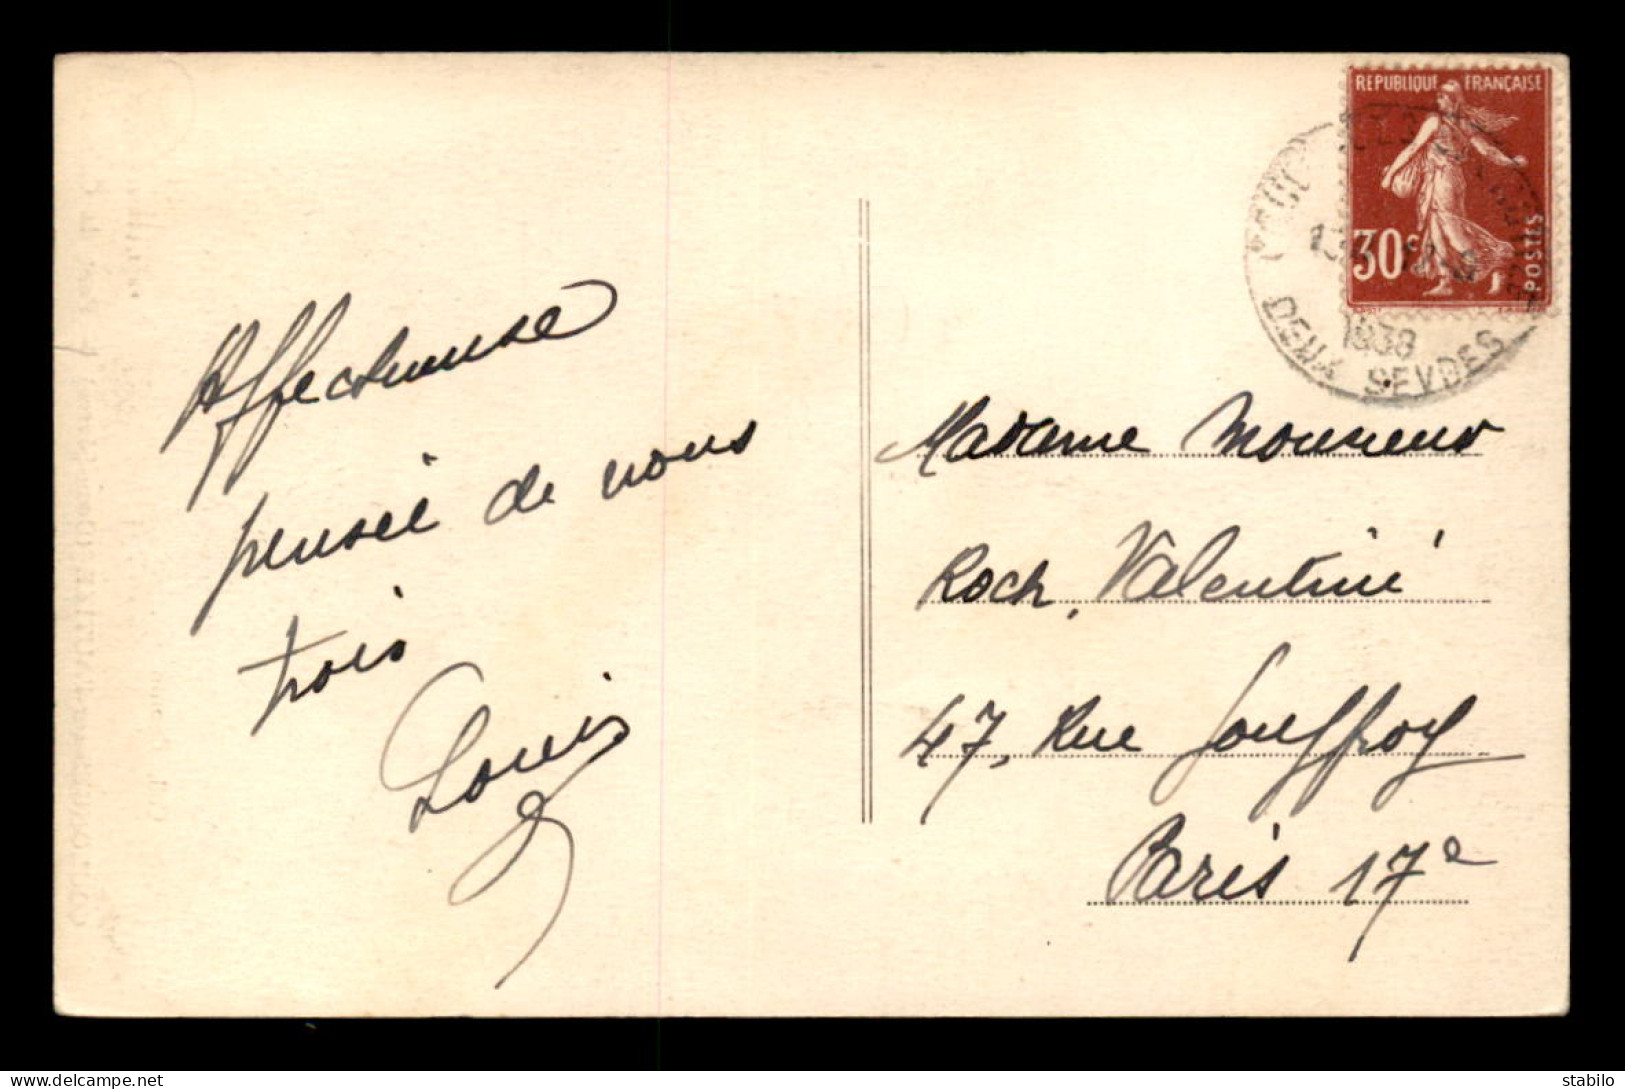 Affectueuse
pensée de nous
trois
Louis
REPUBLIQUE FRANÇAISE
30c
POSTES
1938
DEUX SEVRES
Madame Monsieur
Roch Valentini
47, Rue Jouffroy
Paris 17e
delcampe.net
stabilo